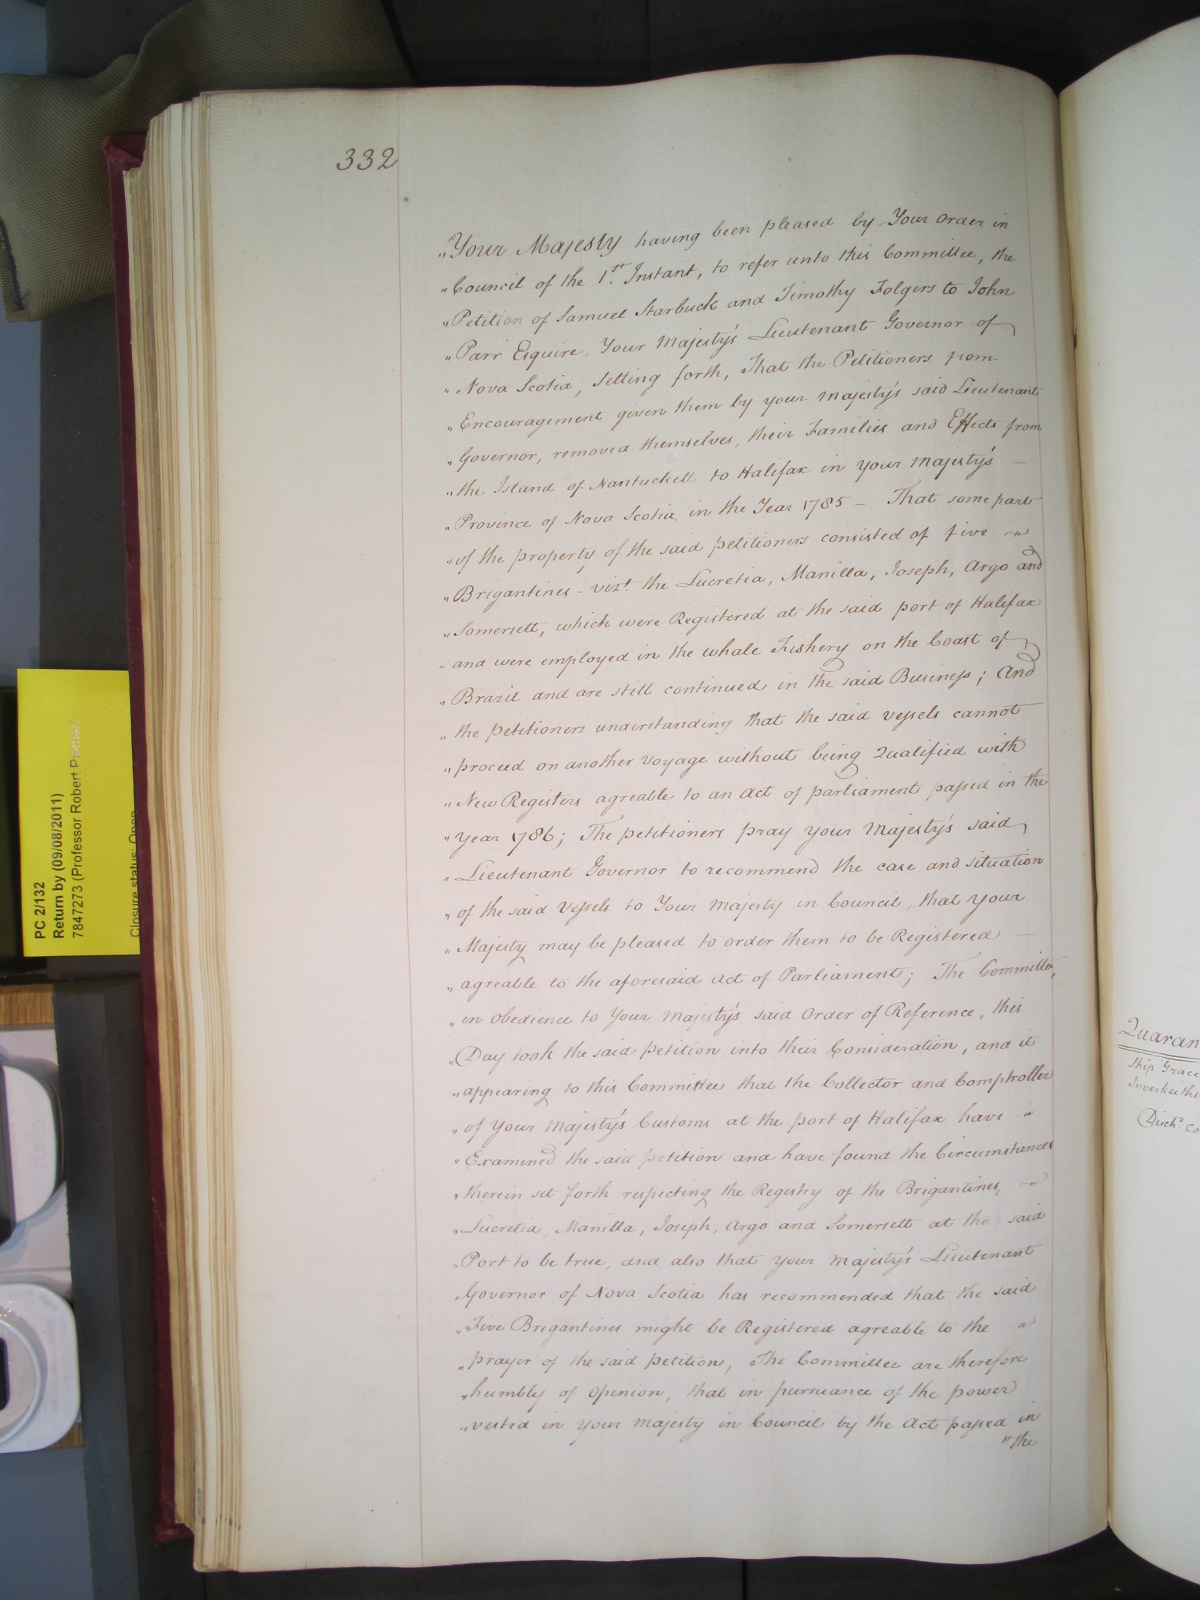 332
"Your Majesty having been pleased by Your Order in
"Council of the 1st. Instant, to refer unto this Committee, the
"Petition of Samuel Starbuck and Timothy Folgers to John
"Parr Esquire. Your Majesty's Lieutenant Governor of
"Nova Scotia, setting forth, That the Petitioners from
"Encouragement given them by your Majesty's said Lieutenant
"Governor, removed themselves, their Families and Effects from
"the Island of Nantuckett to Halifax in your Majesty's
"Province of Nova Scotia in the Year 1785 - That some part
"of the property of the said petitioners consisted of five
"Brigantines - vizt. the Lucretia, Manilla, Joseph, Argo and
"Somersett, which were Registered at the said port of Halifax
"and were employed in the whale Fishery on the Coast of
"Brazil and are still continued in the said Business; And
"the petitioners understanding that the said vessels cannot
"proceed on another voyage without being Qualified with
"New Registers agreable to an Act of parliament passed in the
"Year 1786; The petitioners pray your Majesty's said
"Lieutenant Governor to recommend the case and situation
"of the said vessels to Your Majesty in Council, that your
"Majesty may be pleased to order them to be Registered
"agreable to the aforesaid Act of Parliament; The Committee,
"in Obedience to Your Majesty's said Order of Reference, this
"Day took the said petition into their Consideration, and it
"appearing to this Committee that the Collector and Comptroller
"of Your Majesty's Customs at the port of Halifax have
"Examined the said petition and have found the Circumstances
"therein set forth respecting the Registry of the Brigantines,
"Lucretia, Manilla, Joseph, Argo and Somersett at the said
"Port to be true, and also that your Majesty's Lieutenant
"Governor of Nova Scotia has recommended that the said
"Five Brigantines might be Registered agreable to the
"prayer of the said petition, The Committee are therefore
"humbly of opinion, that in pursuance of the power
"vested in your Majesty in Council by the Act passed in
"the
PC 2/132
Return by (09/08/2011)
7847273 (Professor Robert
Closure status: Open
Quaran
Ship Grace